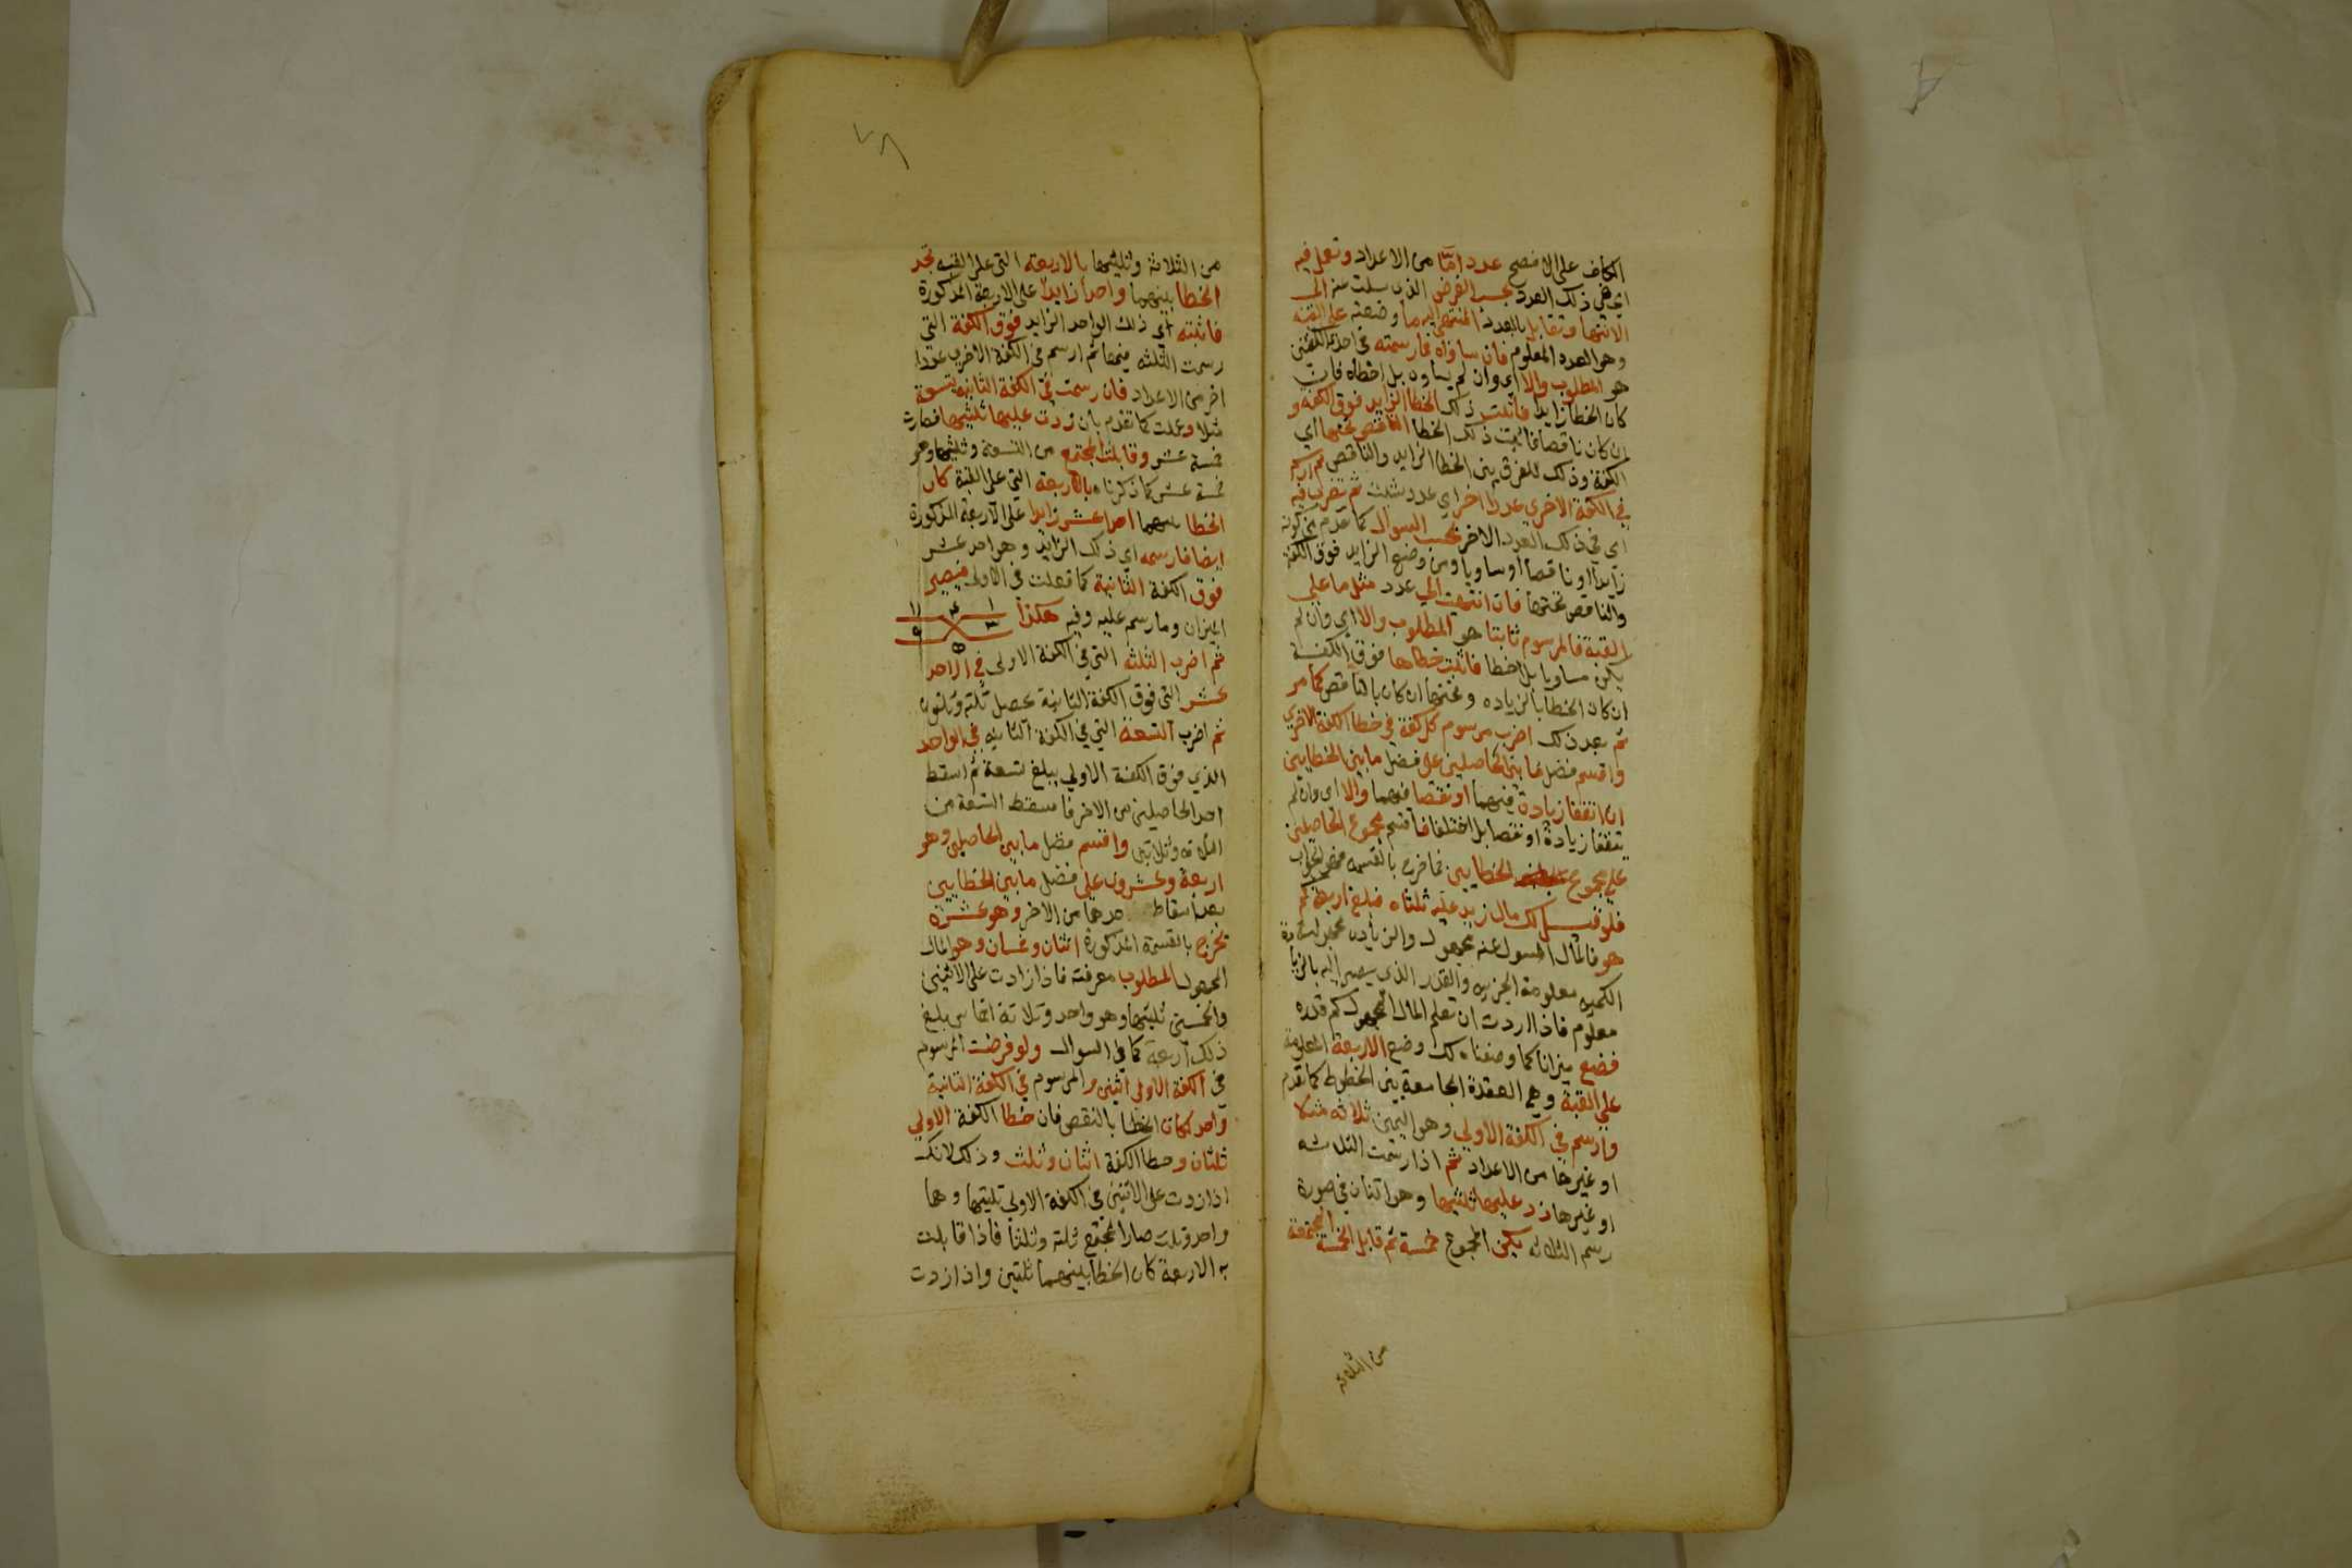 الكاف على الافصح عدد امّا من الاعداد وتعمل فيه
اي في ذلك العدد بحسب الفرض الذي سئلت عنه الى
الانتها وتقابل بالعدد المنتهى اليه ما وضعته على القبة
وهو العدد المعلوم فان ساواه فارسمته في احدى الكفتين
هو المطلوب والا اي وان لم يساوه بل اخطاه فان
كان الخطا زايدا فاثبت ذلك الخطا الزايد فوق الكفة و
ان كان ناقصا فاثبت ذلك الخطا الناقص تحتها اي
الكفة وذلك للفرق بين الخطا الزايد والناقص ثم ارسم
في الكفة الاخرى عددا اخر اي عدد شئت ثم تصرف فيه
اي في ذلك العدد الاخر بحسب السوال كما تقدم من كونه
زايدا او ناقصا او مساويا ومن وضع الزايد فوق الكفة
والناقص تحتها فان انتهيت الى عدد مثل ما على
القبة فالمرسوم ثانيا هو المطلوب والا اي وان لم
يكن مساويا بل اخطا فاثبت خطاها فوق الكفة
ان كان الخطا بالزياده وتحتها ان كان بالناقص كما مر
ثم بعد ذلك اضرب مرسوم كل كفة في خطا الكفة الاخرى
واقسم فضل ما بين الحاصلين على فضل ما بين الخطايين
ان اتفقا زيادة فيهما او نقصا فيهما والا اي وان لم
يتفقا زيادة او نقصا بل اختلفا فاقسم مجموع الحاصلين
على مجموع الخطايين فما خرج بالقسمه فهو الجواب
فلو قيل لك مال زيد عليه ثلثاه فبلغ اربعة كم
هو فالمال المسول عنه مجهول والزياده مجهولة
الكميه معلومة الجزييه والقدر الذي يصير اليه بالزيا
معلوم فاذا اردت ان تعلم المال المجهول كم قدره
فضع ميزانا كما وصفناه لك وضع الاربعة المعلومة
على القبة وهي العقدة الجامعة بين الخطوط كما تقدم
وارسم في الكفة الاولى وهو اليمين ثلاثه مثلا
او غيرها من الاعداد ثم اذا رسمت الثلاثه
او غيرها زد عليها ثلثيها وهو اثنان في صورة
رسم الثلاثه يكن المجموع خمسة ثم قابل الخمسة المجتمعة
من الثلاثة
٧٨
من الثلاثة وثلثيها بالاربعة التي على القبه تجد
الخطا بينهما واحدا زايدا على الاربعة المذكورة
فاثبته اي ذلك الواحد الزايد فوق الكفة التي
رسمت الثلثه فيها ثم ارسم في الكفة الاخرى عددا
اخر من الاعداد فان رسمت في الكفة الثانية تسعة
مثلا وعملت كما تقدم بان زدت عليها ثلثيها فصارت
خمسة عشر وقابلت المجتمع من التسعة وثلثيها وهو
خمسة عشر كما ذكرناه بالاربعة التي على القبة كان
الخطا بينهما احد عشر زايدا على الاربعة المذكورة
ايضا فارسمه اي ذلك الزايد وهو احد عشر
فوق الكفة الثانية كما فعلت في الاولى فيصير
الميزان وما رسم عليه وفيه هكذا
١ ٤ ١١
٣ ٩
ثم اضرب الثلثه التي في الكفة الاولى في الاحد
عشر التي فوق الكفة الثانية يحصل ثلثه وثلثون
ثم اضرب التسعة التي في الكفة الثانيه في الواحد
الذي فوق الكفة الاولى يبلغ تسعة ثم اسقط
احد الحاصلين من الاخر فاسقط التسعة من
الثلاثه وثلاثين واقسم فضل ما بين الحاصلين وهو
اربعة وعشرون على فضل ما بين الخطايين
بعد اسقاط احدهما من الاخر وهو عشرة
يخرج بالقسمة المذكورة اثنان وخمسان وهو المال
المجهول المطلوب معرفته فاذا زادت على الاثنين
والخمسين ثلثيها وهو واحد وثلاثة اخماس بلغ
ذلك اربعة كما في السوال ولو فرضت المرسوم
في الكفة الاولى اثنين والمرسوم في الكفة الثانية
واحد لكان الخطا بالنقص فان خطا الكفة الاولى
ثلثان وخطا الكفة اثنان وثلث وذلك لانك
اذا زدت على الاثنين في الكفة الاولى ثلثيها وهما
واحد وثلث صار المجتمع ثلثه وثلثا فاذا قابلت
به الاربعة كان الخطا بينهما ثلثين واذا زدت